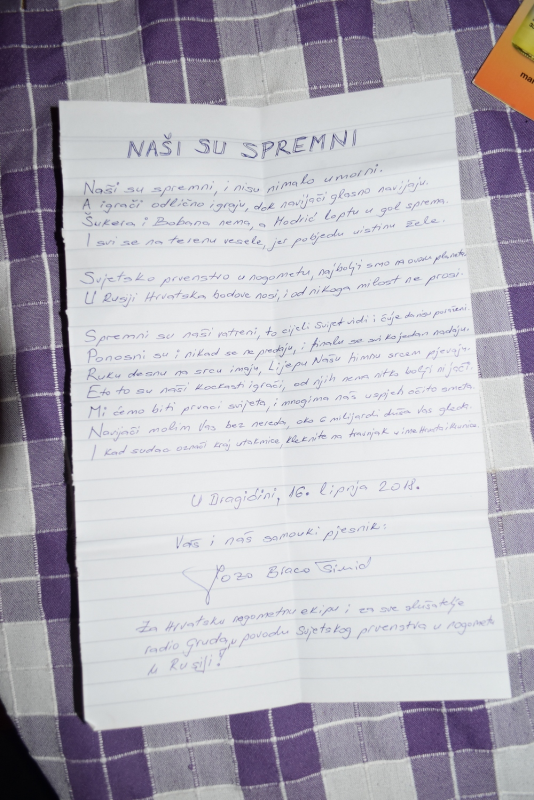 NAŠI SU SPREMNI
Naši su spremni, i nisu nimalo umorni.
A igrači odlično igraju, dok navijači glasno navijaju.
Šukera i Bobana nema, a Modrić loptu u gol sprema.
I svi se na terenu vesele, jer pobjedu uistinu žele.
Svjetsko prvenstvo u nogometu, najbolji smo na ovom planetu.
U Rusiji Hrvatska bodove nosi, i od nikoga milost ne prosi.
Spremni su naši vatreni, to cijeli svijet vidi i čuje da nisu
Ponosni su i nikad se ne predaju, i finalu se svi ko jedan nadaju.
Ruku desnu na srcu imaju, Lijepu Našu himnu srcem pjevaju.
Eto to su naši kockasti igrači, od njih nema nitko bolji ni jači.
Mi ćemo biti prvaci svijeta, i mnogima naš uspjeh očito smeta.
Navijači molim Vas bez nereda, oko 6 milijardi duša Vas gleda.
I kad sudac označi kraj utakmice, kleknite na travnjak u ime
U Dragićini, 16. lipnja 2018.
Vaš i naš samouki pjesnik:
Jozo Braco Simić
Za Hrvatsku nogometnu ekipu i za sve slušatelje
radio Gruda, u povodu Svjetskog prvenstva u nogometu
u Rusiji!
mar